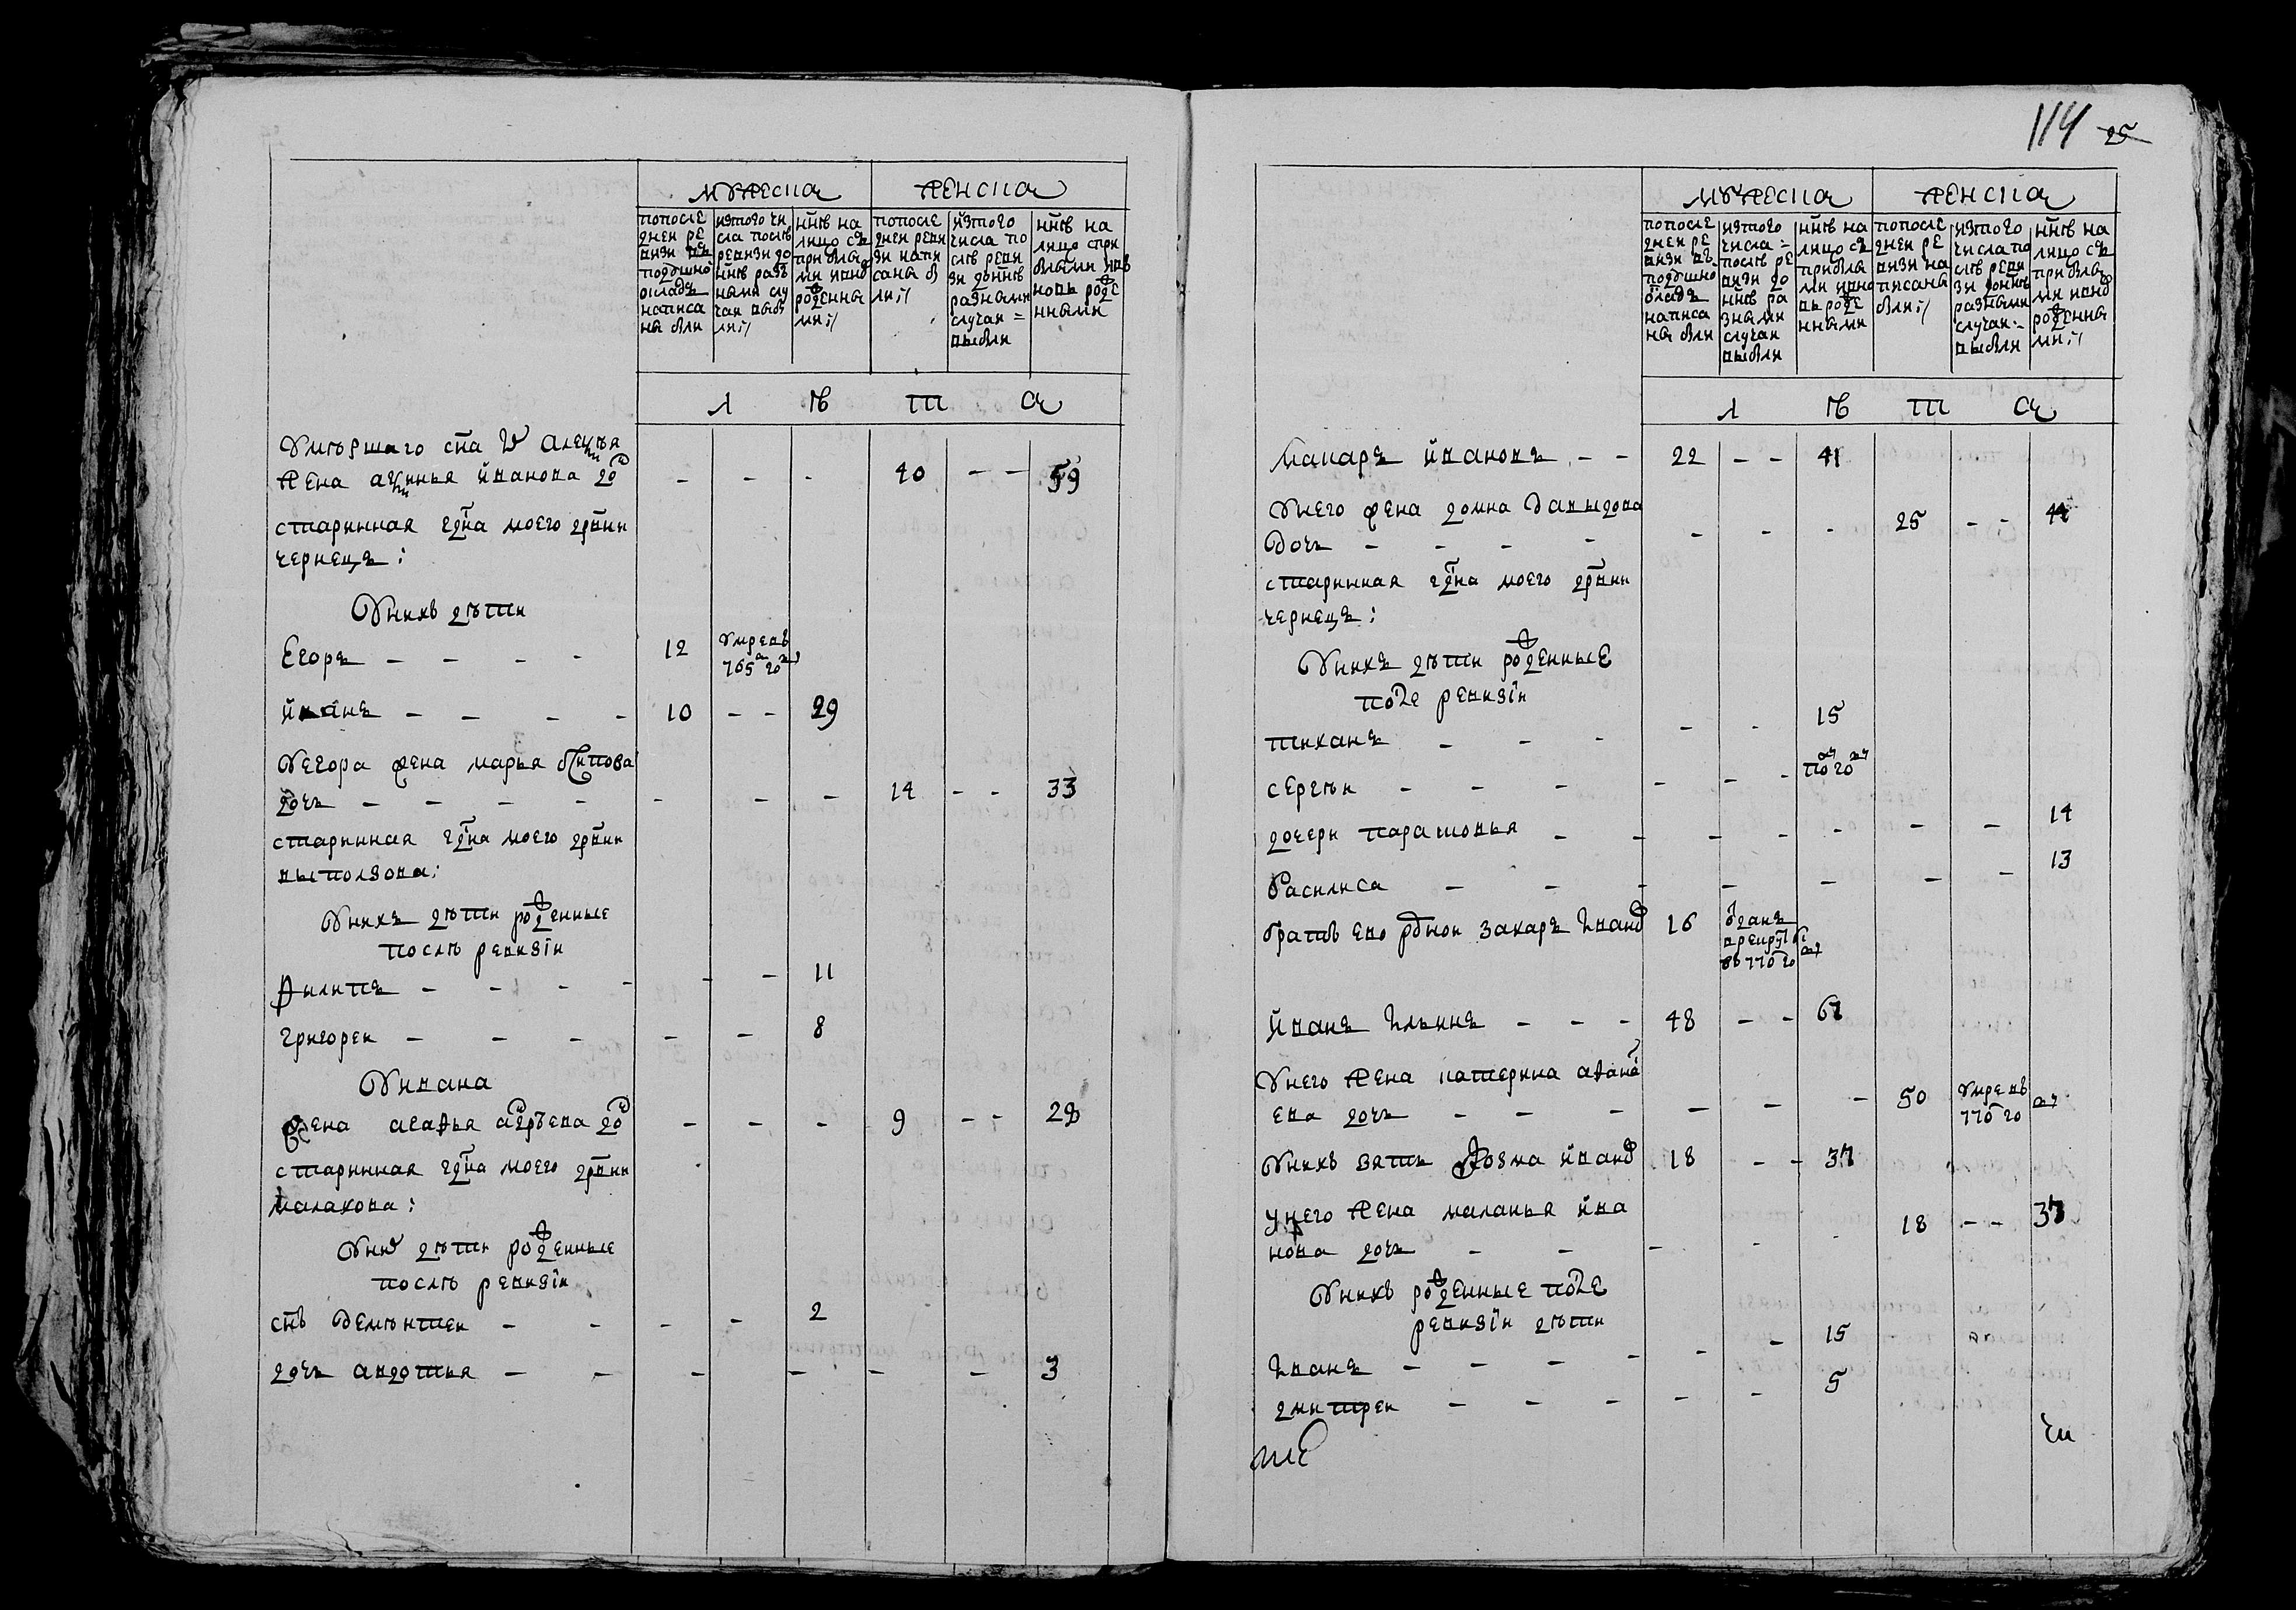 мужеска
женска
попосле
дней ре
визи въ
подушно
окладъ
написа
ны были
изтого чи
сла послѣ
ревизи до
ннѣ разъ
ными слу
чаи выбы
ли
ннѣ на
лицо съ
прибылы
ми и внов
рожденны
ми
попосле
дней реви
зи напи
саны бы
ли
изтого
числа по
слѣ реви
зи доннѣ
разными
случаи =
выбыли
ннѣ на
лицо спри
былыми ивъ
новь рожде
нными
л ѣ т а
Умѣршаго сна
жена Иванова до
старинная моего дрвни
чернецъ:
Уних дѣти
Егоръ - - - - 12 умрѣ въ
765 м году
Иванъ - - - - 10 - - 29
Уегора жена марья
дочь - - - - - - - 14 - - 33
старинная моего дрвни
выползова:
Унихъ дѣти рожденные
послѣ ревизiи
Филипъ - - - - - - 11
григорей - - - - - 8
Уивана
жена агафья до - - - 9 - - 28
старинная моего дрвни
малахова:
Уних дѣти рожденные
послѣ ревизiи
снъ деменѣтей - - - - 2
дочь авдотья - - - - - - 3
114 25
мужеска
женска
попосле
дней ре
визи въ
подушно
окладъ
написа
ны были
изтого
числа =
послѣ ре
визи до
ннѣ ра
зными
случаи
выбыли
ннѣ на
лицо съ
прибылы
ми ивно
вь рожде
нными
попосле
дней ре
визи на
писаны
были
изтого
числа по
слѣ реви
зи доннѣ
разными
случаи
выбыли
ннѣ на
лицо съ
прибылы
ми ивнов
рожденны
ми
л ѣ т а
Макаръ Ивановъ - - 22 - - 41
Унего жена домна давыдова
дочь - - - - - - - 25 - - 44
старинная моего дрвни
чернецъ:
Унихъ дѣти рожденные
после ревизiи
тиханъ - - - - - 15
сергѣи - - - - - - по году
дочери парасковья - - - - - - - 14
Василиса - - - - - - - 13
братъ ево родной захаръ Иванов 16 отданъ
врекруты
въ 770 году
Иванъ Ильинъ - - - 48 - - 67
Унего жена катерина афанас
ева дочь - - - - - - 50 умре въ
770 году
Унихъ зять козма Иванов 18 - - 37
унего жена маланья Ива
нова дочь - - - - - 18 - - 37
Унихъ рожденные после
ревизiи дѣти
Иванъ - - - - - - 15
дмитрей - - - - - 5